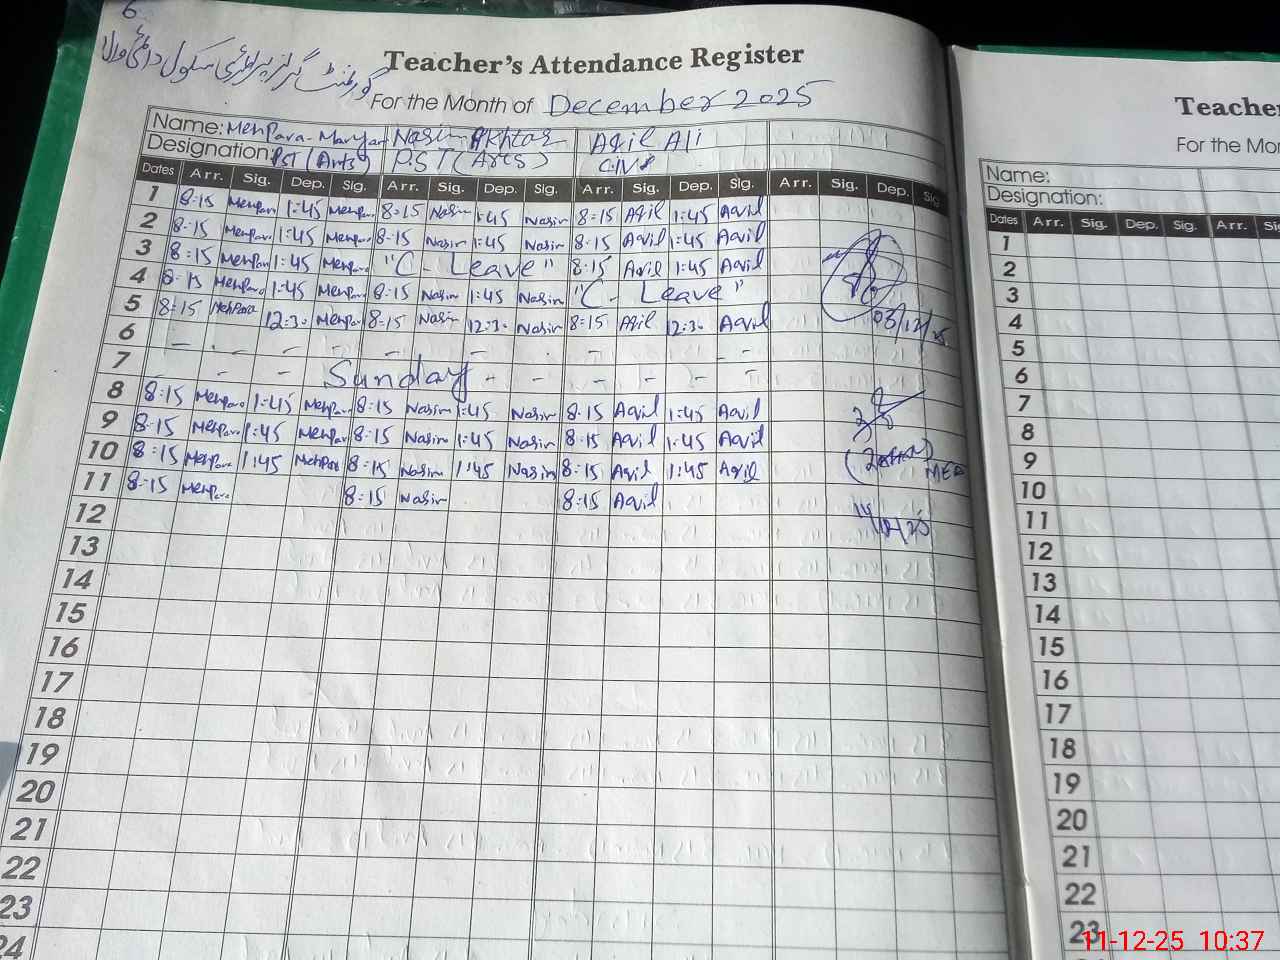 6
گورنمنٹ گرلز پرائمری سکول
Teacher's Attendance Register
For the Month of December 2025
Name: MehPara-Maryam Nasim Akhtar Aqil Ali
Designation: PST (Arts) P.S.T (Arts) C-IV
Dates Arr. Sig. Dep. Sig. Arr. Sig. Dep. Sig. Arr. Sig. Dep. Sig. Arr. Sig. Dep. Sig
1 8:15 MehPara 1:45 MehPara 8:15 Nasim 1:45 Nasim 8:15 Aqil 1:45 Aqil
2 8:15 MehPara 1:45 MehPara 8:15 Nasim 1:45 Nasim 8:15 Aqil 1:45 Aqil
3 8:15 MehPara 1:45 MehPara "C- Leave" 8:15 Aqil 1:45 Aqil
4 8:15 MehPara 1:45 MehPara 8:15 Nasim 1:45 Nasim "C- Leave"
5 8:15 MehPara 12:30 MehPara 8:15 Nasim 12:30 Nasim 8:15 Aqil 12:30 Aqil 03/12/25
6 - - - - - - - - -
7 - - - Sunday - - - - -
8 8:15 MehPara 1:45 MehPara 8:15 Nasim 1:45 Nasim 8:15 Aqil 1:45 Aqil
9 8:15 MehPara 1:45 MehPara 8:15 Nasim 1:45 Nasim 8:15 Aqil 1:45 Aqil
10 8:15 MehPara 1:45 MehPara 8:15 Nasim 1:45 Nasim 8:15 Aqil 1:45 Aqil MEA
11 8:15 MehPara 8:15 Nasim 8:15 Aqil
12
13
14
15
16
17
18
19
20
21
22
23
24
Teacher
For the Mon
Name:
Designation:
Dates Arr. Sig. Dep. Sig. Arr. Sig
1
2
3
4
5
6
7
8
9
10
11
12
13
14
15
16
17
18
19
20
21
22
23
11-12-25 10:37